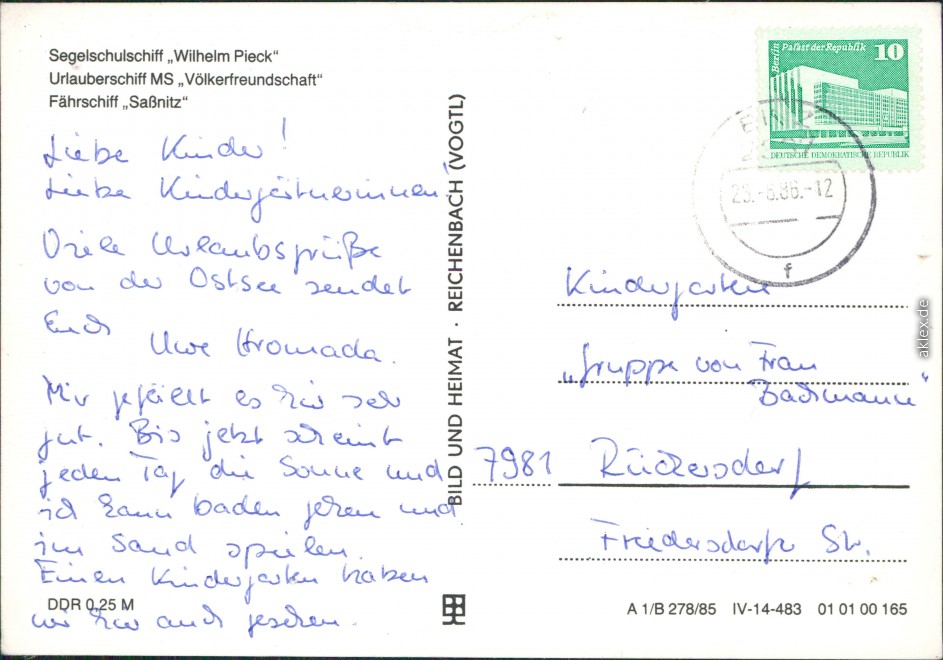 Segelschulschiff „Wilhelm Pieck“
Urlauberschiff MS „Völkerfreundschaft“
Fährschiff „Saßnitz“
Liebe Kinder!
Liebe Kindergärtnerinnen!
Viele Urlaubsgrüße
von der Ostsee sendet
Euch
Uwe Hromada.
Mir gefällt es hier sehr
gut. Bis jetzt scheint
jeden Tag die Sonne und
ich kann baden gehen und
im Sand spielen.
Einen Kindergarten haben
wir hier auch gesehen.
DDR 0,25 M
BILD UND HEIMAT · REICHENBACH (VOGTL)
Berlin Palast der Republik 10
DEUTSCHE DEMOKRATISCHE REPUBLIK
23.-8.86.-12
f
Kindergarten
„Gruppe von Frau
Bachmann“
7981 Rückersdorf
Friedersdorfer Str.
A 1/B 278/85 IV-14-483 01 01 00 165
aklex.de